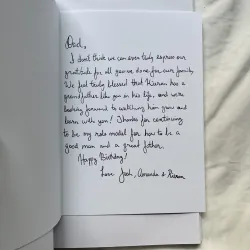 Dad,
I don't think we can ever truly express our
gratitude for all you've done for our family.
We feel truly blessed that Kieran has a
grandfather like you in his life, and we're
looking forward to watching him grow and
learn with you! Thanks for continuing
to be my role model for how to be a
good man and a great father.
Happy Birthday!
Love Josh, Amanda & Kieran